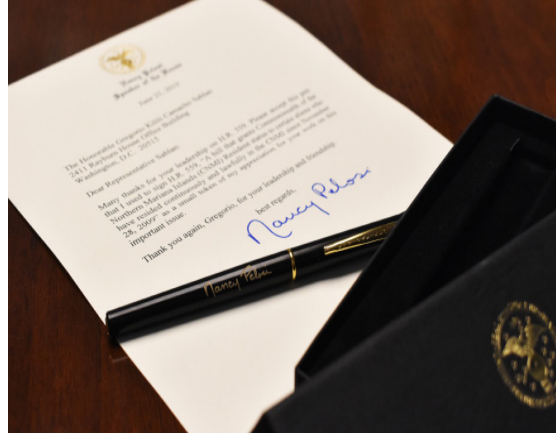 Nancy Pelosi
Speaker of the House
June 25, 2019
The Honorable Gregorio Kilili Camacho Sablan
2411 Rayburn House Office Building
Washington, D.C. 20515
Dear Representative Sablan:
Many thanks for your leadership on H.R. 559. Please accept this pen
that I used to sign H.R. 559, "A bill that grants Commonwealth of the
Northern Mariana Islands (CNMI) Resident status to certain aliens who
have resided continuously and lawfully in the CNMI since November
28, 2009" as a small token of my appreciation for your work on this
important issue.
Thank you again, Gregorio, for your leadership and friendship.
best regards,
Nancy Pelosi
Nancy Pelosi